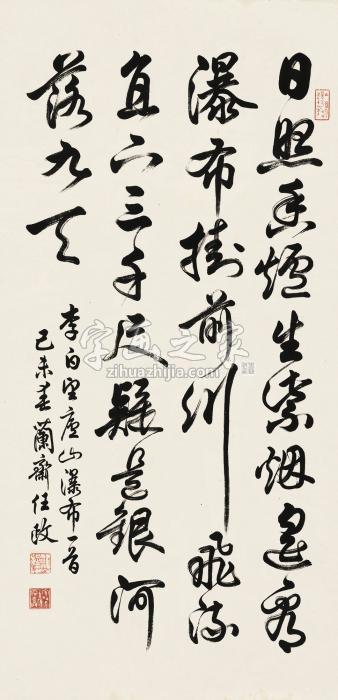 日照香爐生紫烟遥看
瀑布掛前川飛流
直下三千尺疑是銀河
落九天
李白望廬山瀑布一首
己未春蘭齋任政
字画之家
zihuazhijia.com